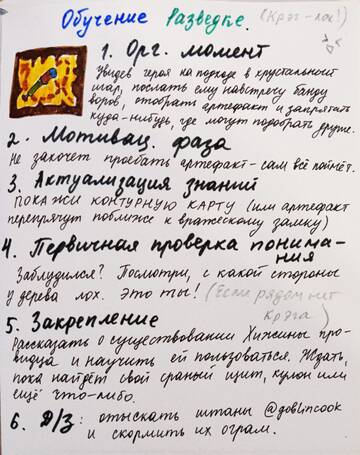 Обучение Разведке. (Крэг-лох!)
1. Орг. момент
Увидев героя на подходе в хрустальный
шар, послать ему навстречу банду
воров, отобрать артефакт и запрятить
куда-нибудь, где могут подобрать другие.
2. Мотивац. фаза
Не захочет проебать артефакт - сам всё поймёт.
3. Актуализация знаний
ПОКАЖИ КОНТУРНУЮ КАРТУ (или артефакт
перепрячут поближе к вражескому замку)
4. Первичная проверка понима-
ния
Заблудился? Посмотри, с какой стороны
у дерева лох. Это ты! (Если рядом нет
Крэга)
5. Закрепление
Рассказать о существовании Хижины про-
видца и научить ей пользоваться. Ждать,
пока найдёт свой сраный щит, кулон или
ещё что-либо.
6. Д/З: отыскать штаны @goblincook
и скормить их ограм.